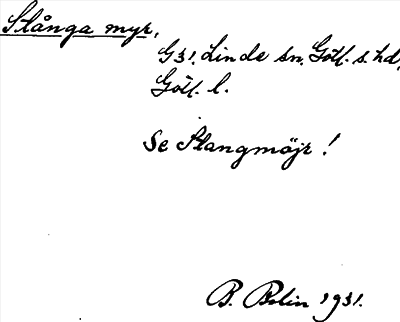 Stånga myr.
G31. Linde sn. Gotl. s. hd.
Gotl. l.
Se Stangmöjr!
B. Bolin 1931.